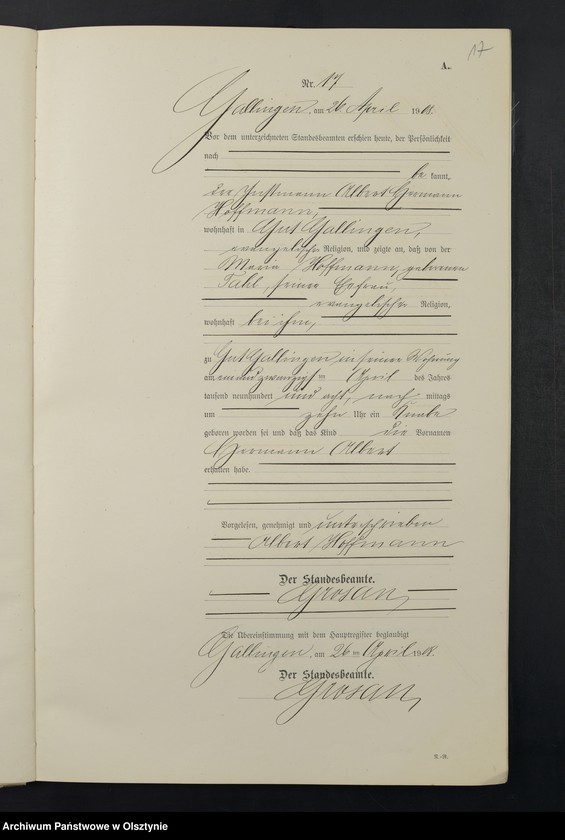 17
A.
Nr. 17
Gallingen, am 26. April 1908.
Vor dem unterzeichneten Standesbeamten erschien heute, der Persönlichkeit
nach
be kannt,
der Instmann Albert Hermann
Hoffmann,
wohnhaft in Gut Gallingen,
evangelischer Religion, und zeigte an, daß von der
Maria Hoffmann, geborenen
seiner Ehefrau,
evangelischer Religion,
wohnhaft bei ihm,
zu Gut Gallingen, in seiner Wohnung
am ten April des Jahres
tausend neunhundert und acht, nach mittags
um zehn Uhr ein Knabe
geboren worden sei und daß das Kind die Vornamen
Hermann Albert
erhalten habe.
Vorgelesen, genehmigt und unterschrieben
Albert Hoffmann
Der Standesbeamte.
Grosan
Die Übereinstimmung mit dem Hauptregister beglaubigt
Gallingen, am 26ten April 1908.
Der Standesbeamte.
Grosan
Archiwum Państwowe w Olsztynie